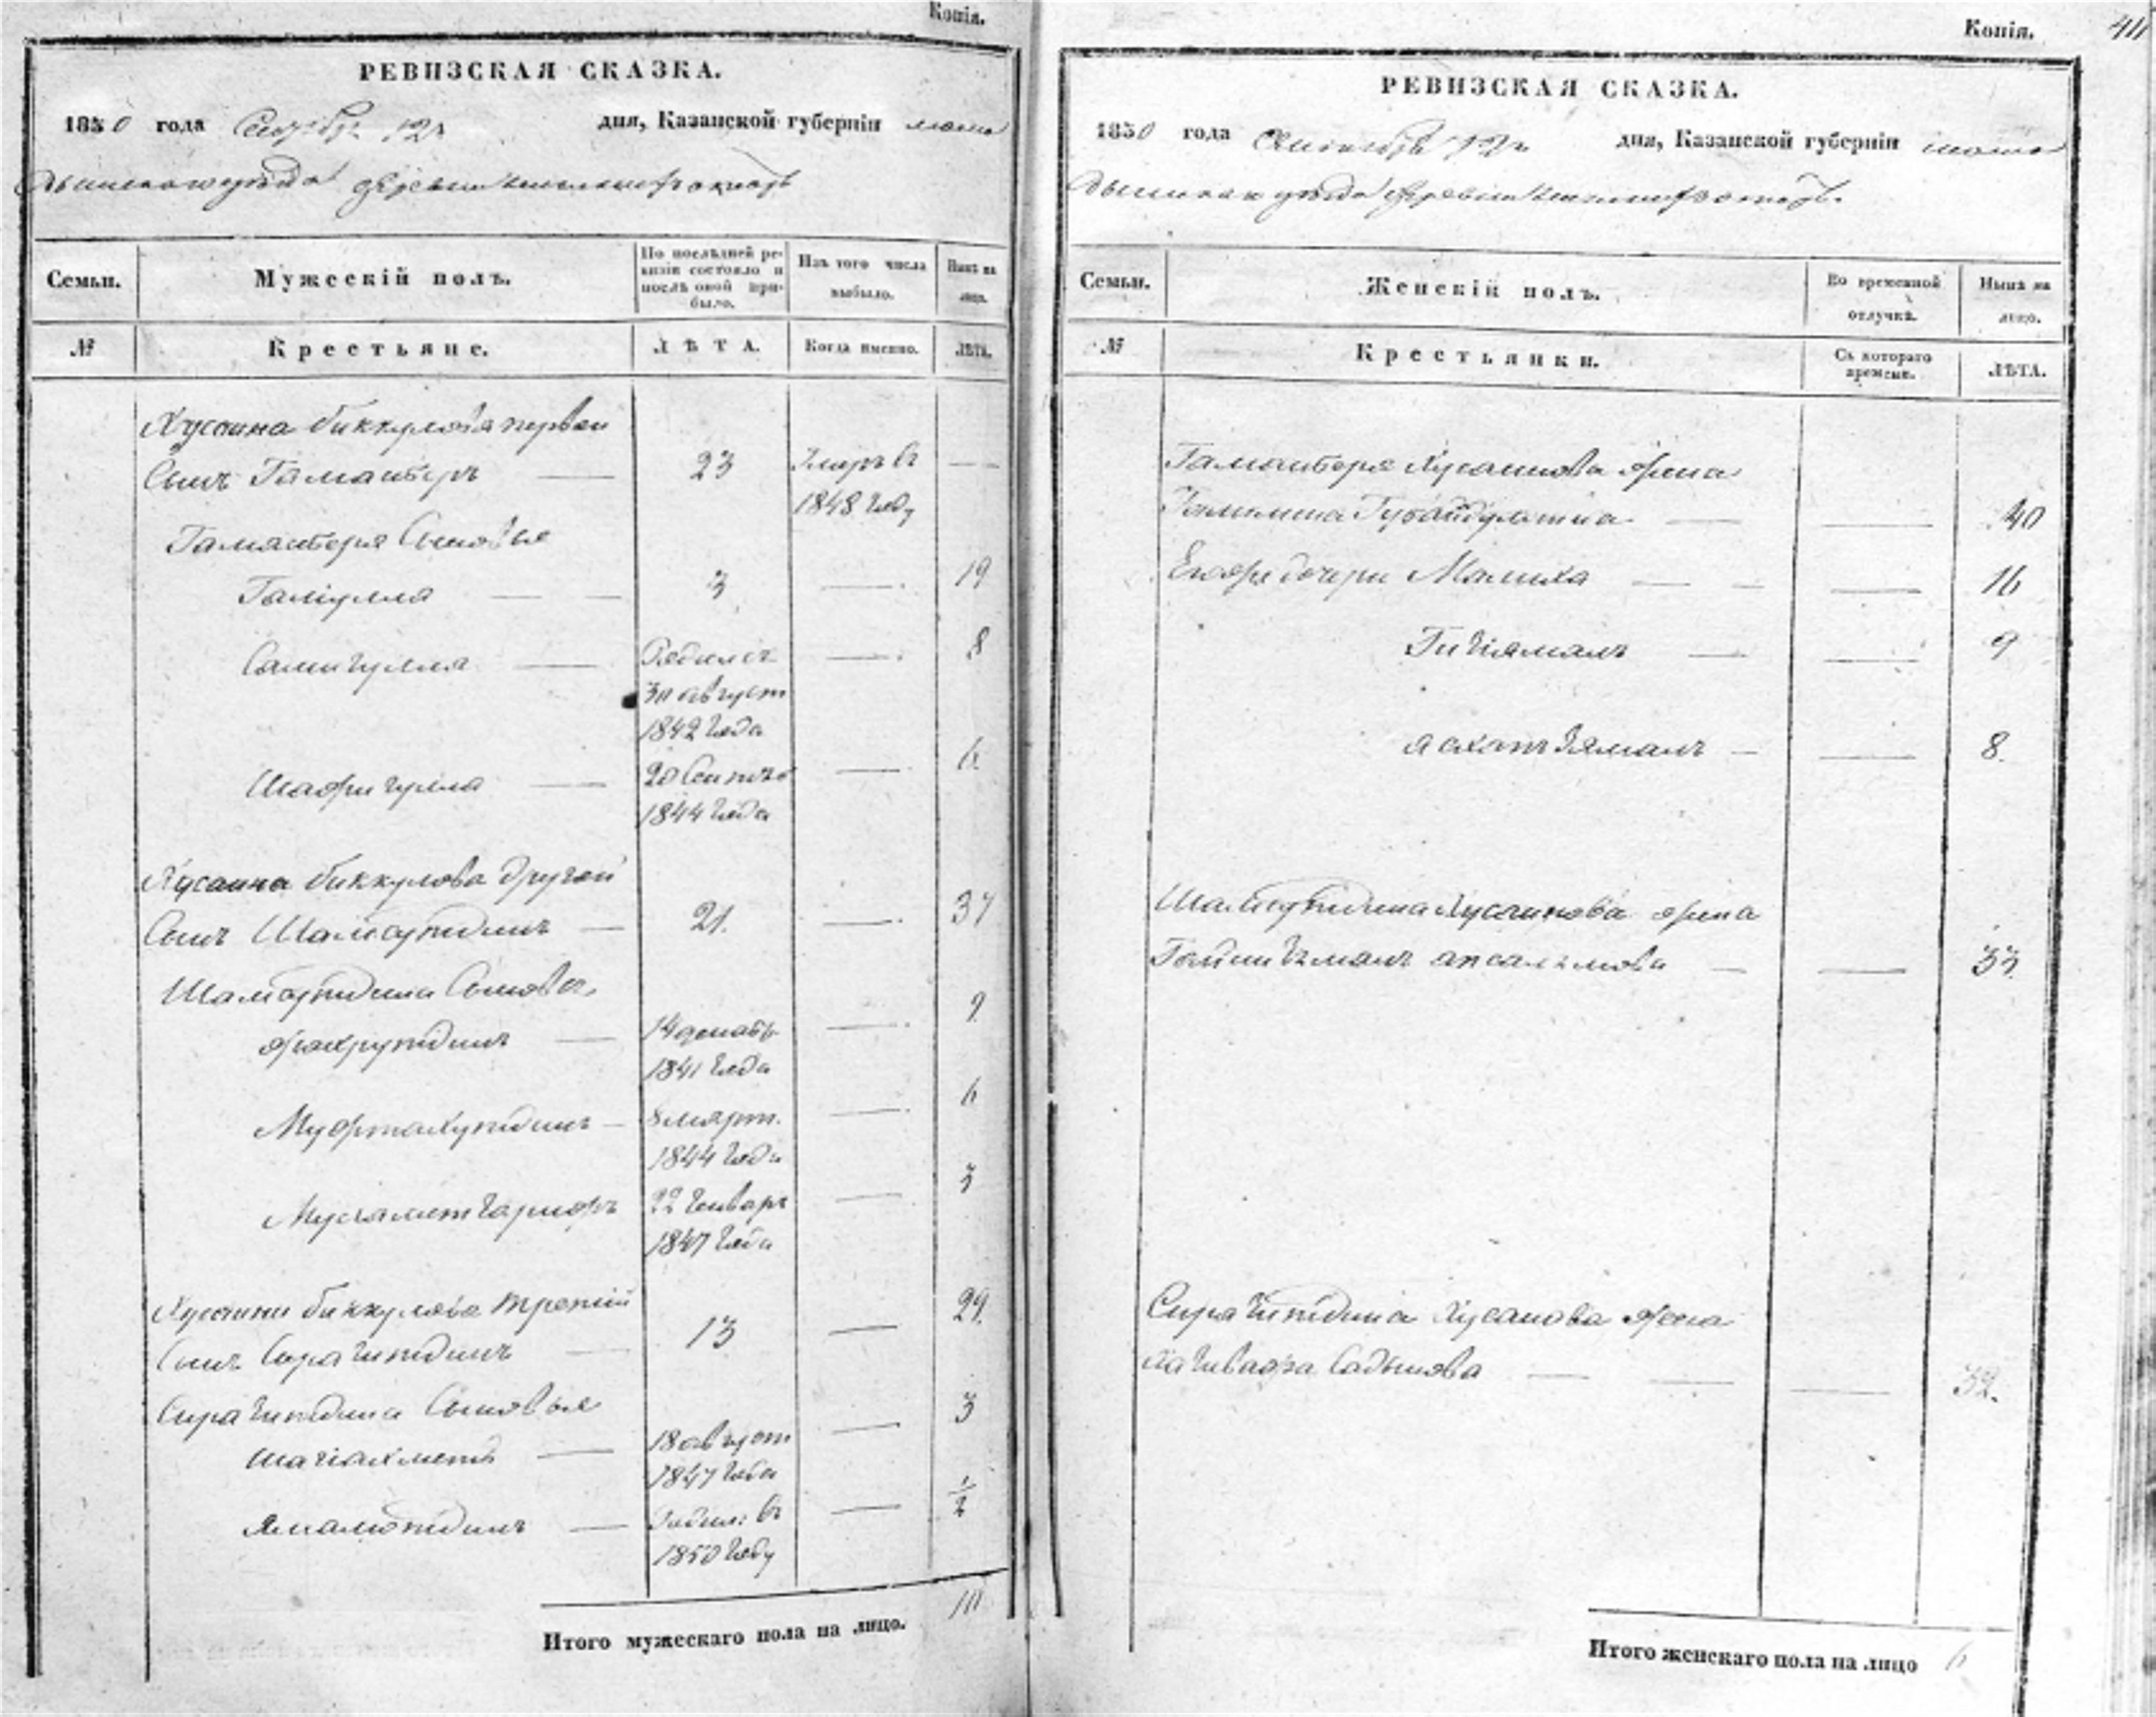 Копія.
РЕВИЗСКАЯ СКАЗКА.
1850 года 12 дня, Казанской губерніи мама
дышскаго уѣзда деревни
Семьи. Мужескій полъ. По послѣдней ревизіи состояло и послѣ оной прибыло. Изъ того числа выбыло. Нынѣ на лицо.
№ Крестьяне. ЛѢТА. Когда именно. ЛѢТА.
Хусаина биккулова первой
Сынъ 23 Умеръ въ —
1848 году
Сыновья
Галіулла — — 3 — 19
Самигулла — Родился — 8
30 август
1842 года
Шафигулла — 20 Сентяб — 6
1844 года
Хусаина биккулова другой
Сынъ Шамсутдинъ — 21. — 37
Шамсутдина Сыновья
Фахрутдинъ — 14 декабр — 9
1841 года
Муфтахутдинъ — 8 март. — 6
1844 года
Мухаметгарифъ 22 Генваря — 3
1847 года
Хусаина биккулова третій
Сынъ Сирагитдинъ — 13 — 29.
Сирагитдина Сыновья
Шагіахметъ — 18 август — 3
1847 года
Ямалютдинъ — Родил: въ — 1/2
1850 году
Итого мужескаго пола на лицо. 10
Копія.
РЕВИЗСКАЯ СКАЗКА.
1850 года Сентября 12 дня, Казанской губерніи мама
дышскаго уѣзда деревни
Семьи. Женскій полъ. Во временной отлучкѣ. Нынѣ на лицо.
№ Крестьянки. Съ котораго времени. ЛѢТА.
Хусаинова жена
Губайдуллина — — 40
Его дочери Малиха — — — 16
— — 9
— — 8.
Шамсутдина Хусаинова жена
— — 33.
Сирагитдина Хусаинова жена
Садыкова — — — 32.
Итого женскаго пола на лицо 6